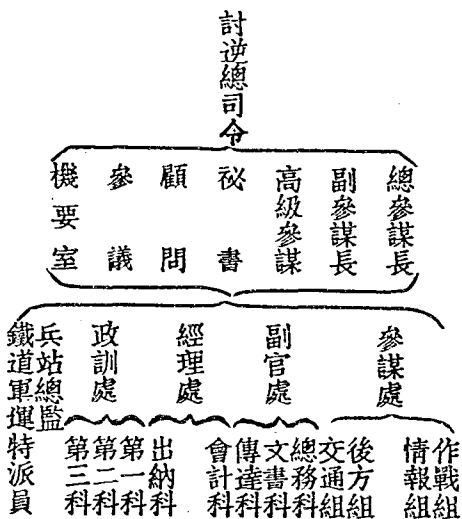 討逆總司令
總參謀長
副參謀長
高級參謀
祕書
顧問
參議
機要室
參謀處
副官處
經理處
政訓處
兵站總監
鐵道軍運特派員
作戰組
情報組
後方組
交通組
總務科
文書科
傳達科
會計科
出納科
第一科
第二科
第三科